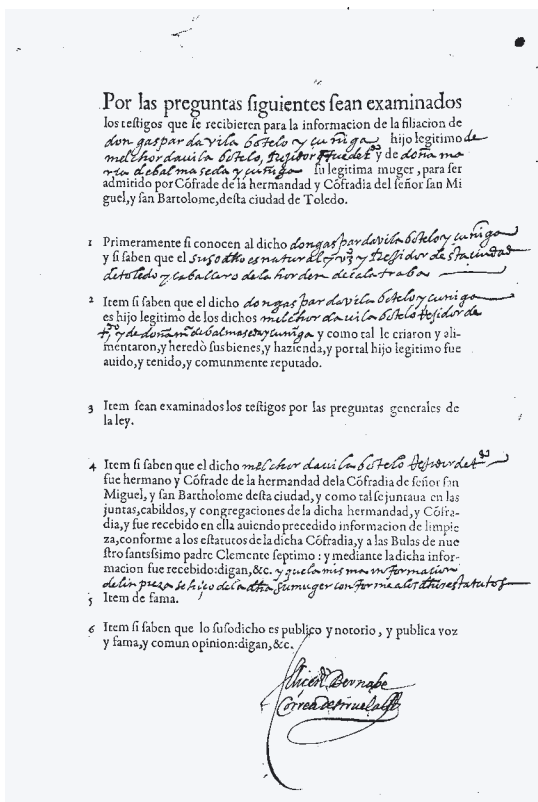 Por las preguntas siguientes sean examinados
los testigos que se recibieren para la informacion de la filiacion de
don gaspar davila botelo y çuñiga hijo legitimo de
melchor davila botelo, Regidor que fue de tdo y de doña ma
ria de balmaseda y çuñiga su legitima muger, para ser
admitido por Cófrade de la hermandad y Cófradia del señor san Mi
guel, y san Bartolome, desta ciudad de Toledo.
1 Primeramente si conocen al dicho don gaspar davila botelo y çuñiga
y si saben que el susodho es natural y vzº y Regidor desta ciudad
de toledo y caballero de la horden de calatraba
2 Item si saben que el dicho don gaspar davila botelo y cuniga
es hijo legitimo de los dichos melchor davila botelo Regidor de
tdo y de doña mª de balmaseda y çuñiga y como tal le criaron y ali-
mentaron, y heredò sus bienes, y hazienda, y por tal hijo legitimo fue
auido, y tenido, y comunmente reputado.
3 Item sean examinados los testigos por las preguntas generales de
la ley.
4 Item si saben que el dicho melchor davila botelo Regidor de tdo
fue hermano y Cófrade de la hermandad dela Cófradia de señor san
Miguel, y san Bartholome desta ciudad, y como tal se juntaua en las
juntas, cabildos, y congregaciones de la dicha hermandad, y Cófra-
dia, y fue recebido en ella auiendo precedido informacion de limpie
za, conforme a los estatutos de la dicha Cófradia, y a las Bulas de nue
stro santissimo padre Clemente septimo: y mediante la dicha infor-
macion fue recebido: digan, &c. y que la misma informacion
de limpieza se hiço de la dha su muger conforme a los dhos estatutos
5 Item de fama.
6 Item si saben que lo susodicho es publico y notorio, y publica voz
y fama, y comun opinion: digan, &c.
Bernabe
Correa de